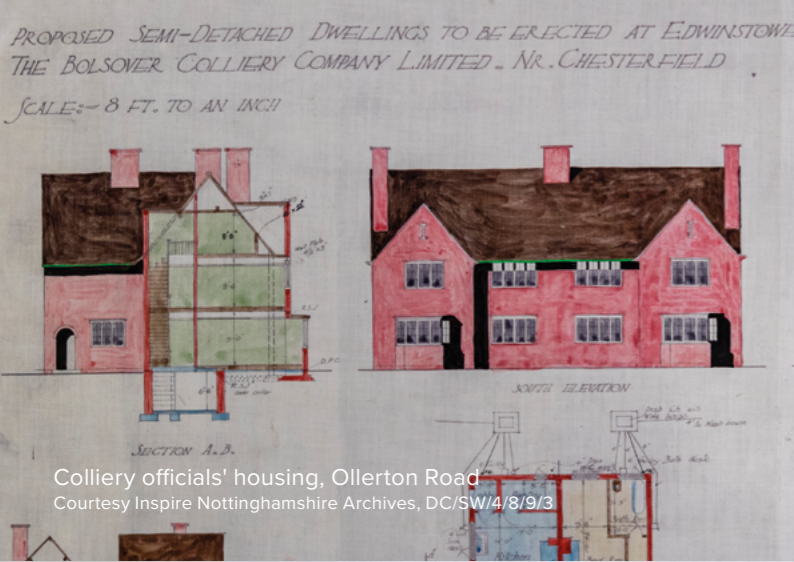 PROPOSED SEMI-DETACHED DWELLINGS TO BE ERECTED AT EDWINSTOWE
THE BOLSOVER COLLIERY COMPANY LIMITED. NR. CHESTERFIELD
SCALE:- 8 FT. TO AN INCH
R.S.J.
D.P.C.
R.S.J.
over cellar
SOUTH ELEVATION
SECTION A.B.
Kitchen
Colliery officials' housing, Ollerton Road
Courtesy Inspire Nottinghamshire Archives, DC/SW/4/8/9/3